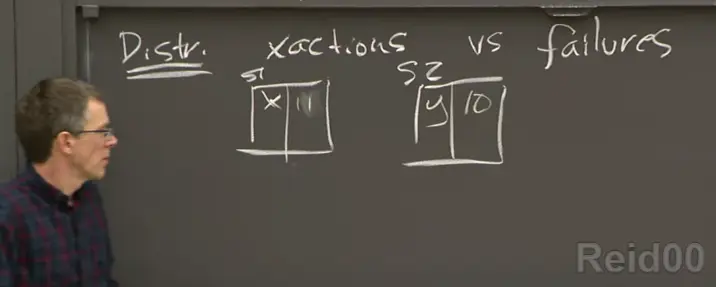 Distr. xactions vs failures
S1 S2
x 11 y 10
Reid00